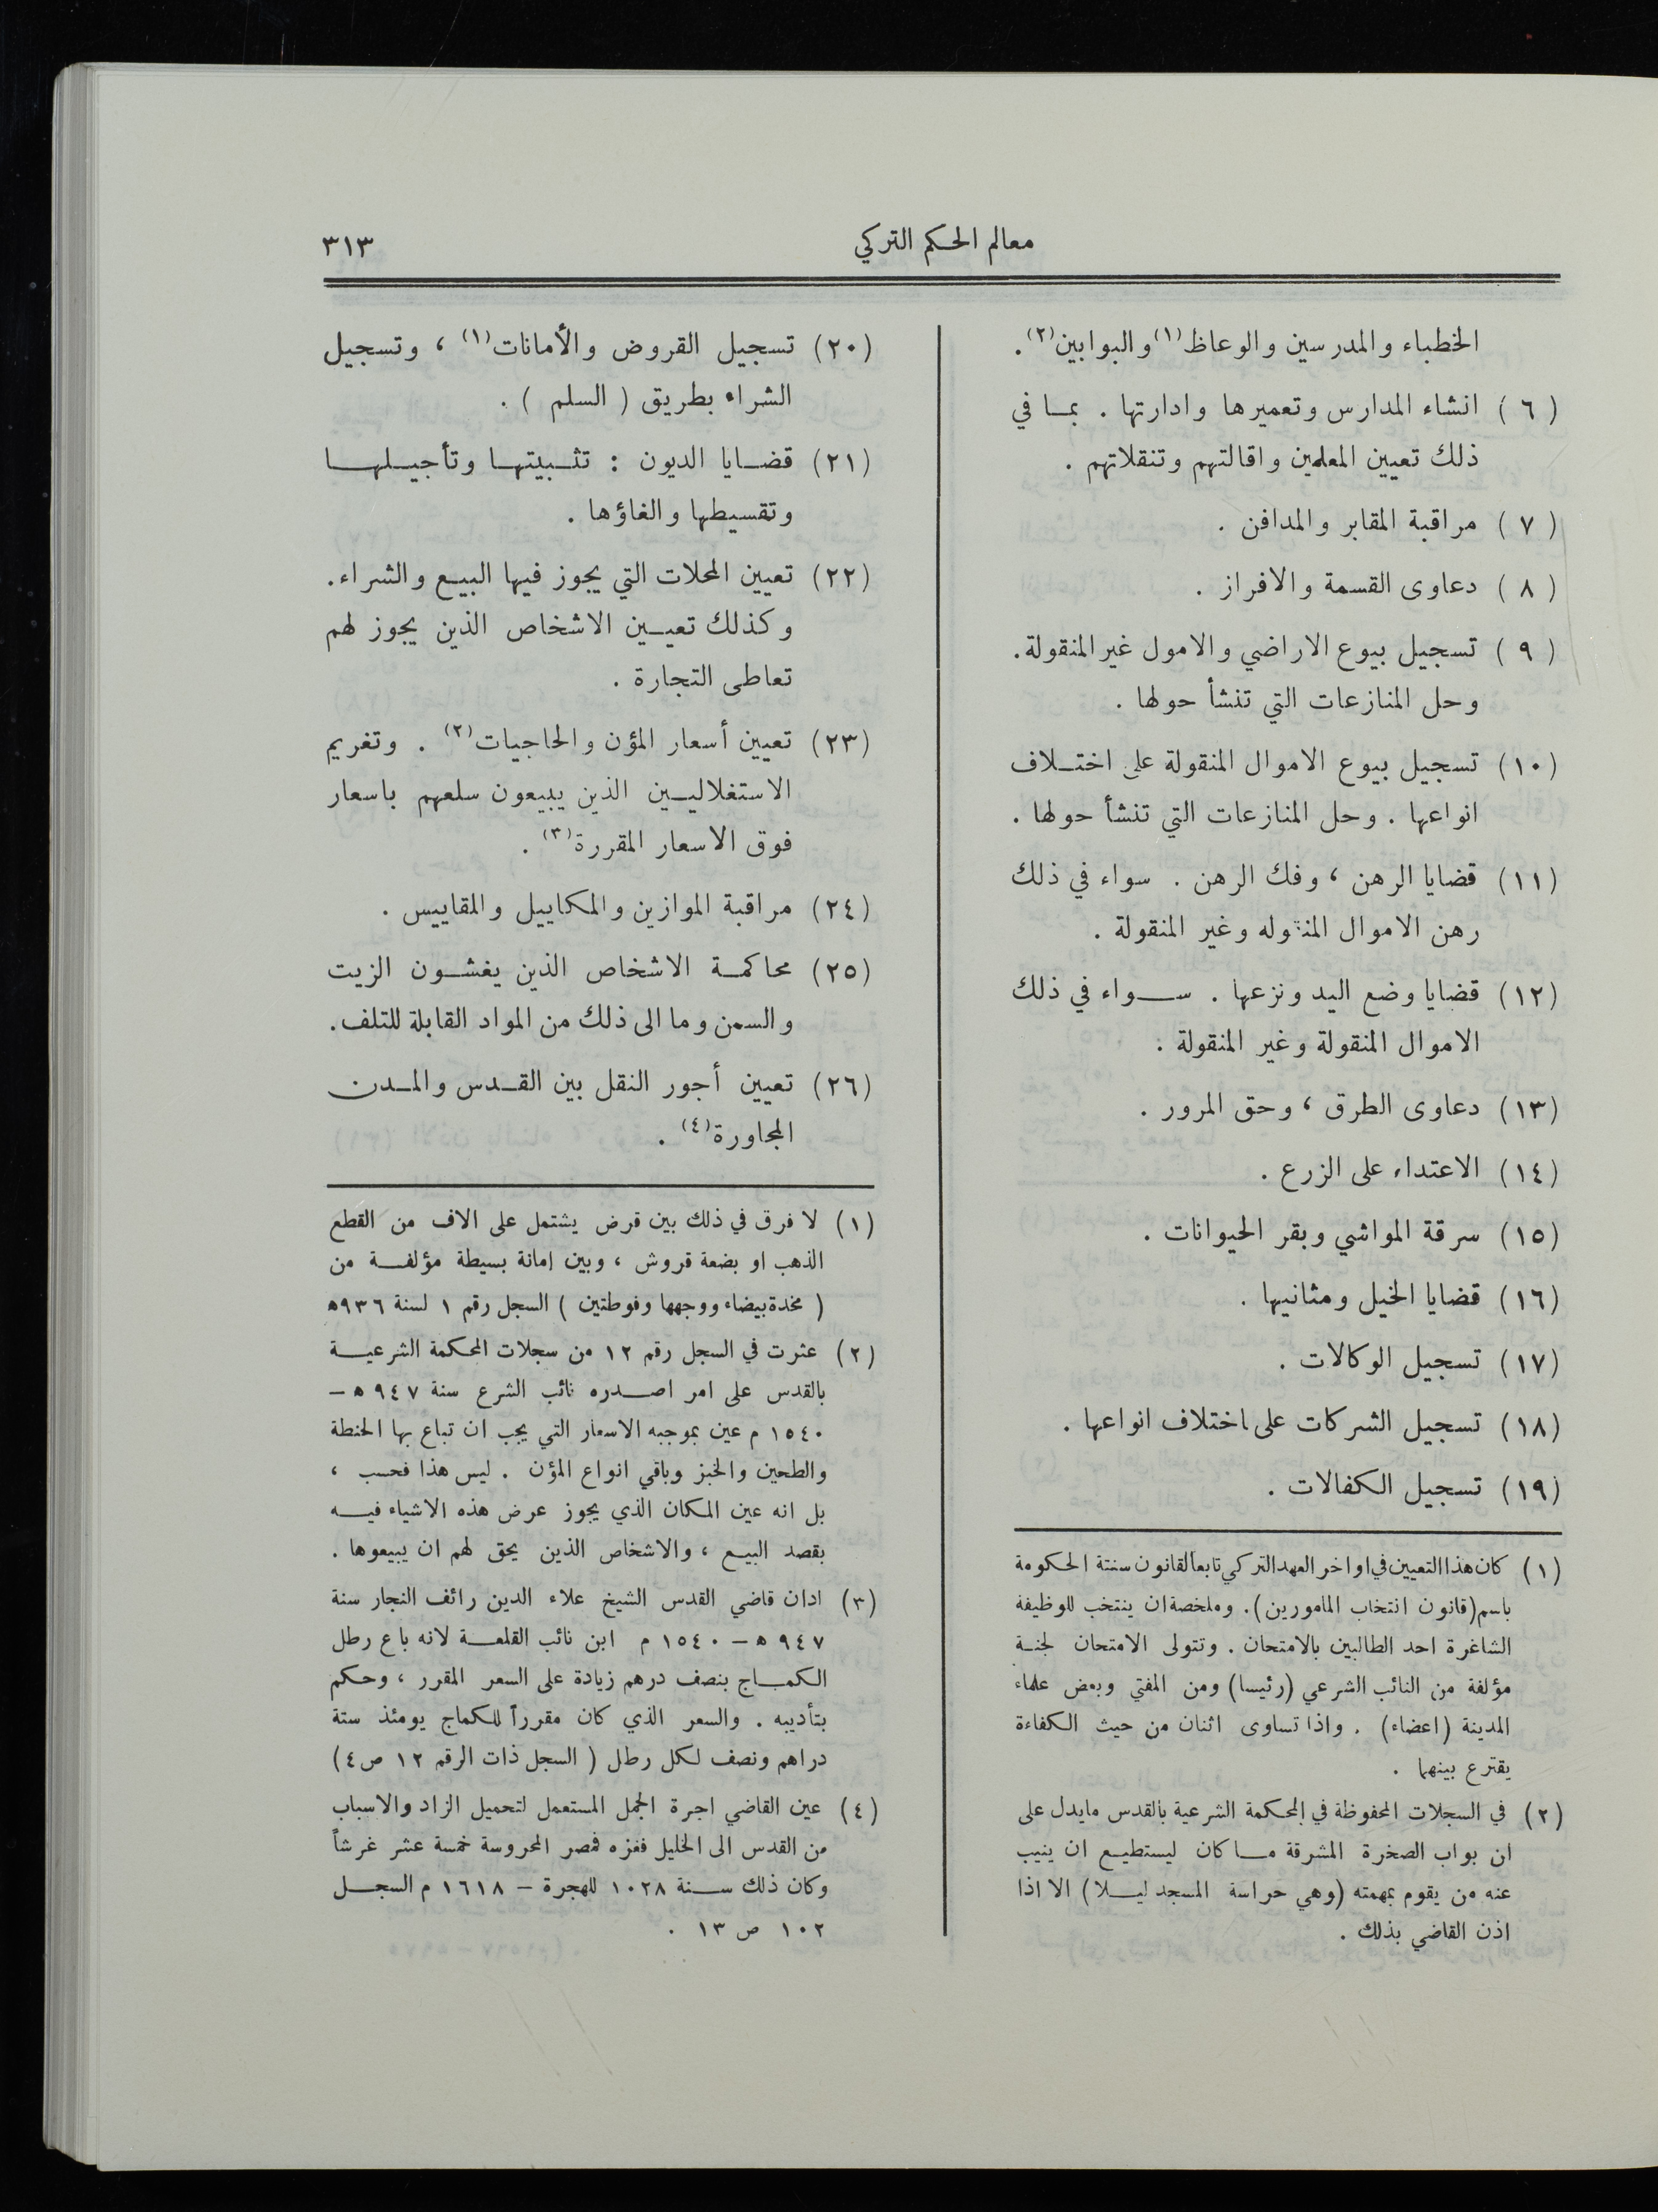 معالم الحكم التركي
٣١٣
الخطباء والمدرسين والوعاظ(١) والبوابين(٢).
( ٦ ) انشاء المدارس وتعميرها وادارتها . بما في
ذلك تعيين المعلمين واقالتهم وتنقلاتهم .
( ٧ ) مراقبة المقابر والمدافن .
( ٨ ) دعاوى القسمة والافراز .
( ٩ ) تسجيل بيوع الاراضي والامول غير المنقولة.
وحل المنازعات التي تنشأ حولها .
(١٠) تسجيل بيوع الاموال المنقولة على اختلاف
انواعها . وحل المنازعات التي تنشأ حولها .
(١١) قضايا الرهن ، وفك الرهن . سواء في ذلك
رهن الاموال المنقوله وغير المنقولة .
(١٢) قضايا وضع اليد ونزعها . سواء في ذلك
الاموال المنقولة وغير المنقولة .
(١٣) دعاوى الطرق ، وحق المرور .
(١٤) الاعتداء على الزرع .
(١٥) سرقة المواشي وبقر الحيوانات .
(١٦) قضايا الخيل ومثانيها .
(١٧) تسجيل الوكالات .
(١٨) تسجيل الشركات على اختلاف انواعها .
(١٩) تسجيل الكفالات .
(١) كان هذا التعيين في اواخر العهد التركي تابعاً لقانون سنتة الحكومة
باسم (قانون انتخاب المامورين). وملخصة ان ينتخب للوظيفة
الشاغرة احد الطالبين بالامتحان . وتتولى الامتحان لجنة
مؤلفة من النائب الشرعي (رئيسا) ومن المفتي وبعض علماء
المدينة (اعضاء) . واذا تساوى اثنان من حيث الكفاءة
يقترع بينهما .
(٢) في السجلات المحفوظة في المحكمة الشرعية بالقدس مايدل على
ان بواب الصخرة المشرقة ما كان ليستطيع ان ينيب
عنه من يقوم بمهمته (وهي حراسة المسجد ليلا) الا اذا
اذن القاضي بذلك .
(٢٠) تسجيل القروض والأمانات(١) ، وتسجيل
الشراء بطريق ( السلم ) .
(٢١) قضايا الديون : تثبيتها وتأجيلها
وتقسيطها والغاؤها .
(٢٢) تعيين المحلات التي يجوز فيها البيع والشراء.
وكذلك تعيين الاشخاص الذين يجوز لهم
تعاطى التجارة .
(٢٣) تعيين أسعار المؤن والحاجيات(٢) . وتغريم
الاستغلاليين الذين يبيعون سلعهم باسعار
فوق الاسعار المقررة(٣) .
(٢٤) مراقبة الموازين والمكاييل والمقاييس .
(٢٥) محاكمة الاشخاص الذين يغشون الزيت
والسمن وما الى ذلك من المواد القابلة للتلف.
(٢٦) تعيين أجور النقل بين القدس والمدن
المجاورة(٤) .
(١) لا فرق في ذلك بين قرض يشتمل على الاف من القطع
الذهب او بضعة قروش ، وبين امانة بسيطة مؤلفة من
( مخدة بيضاء ووجهها وفوطتين ) السجل رقم ١ لسنة ٩٣٦ه
(٢) عثرت في السجل رقم ١٢ من سجلات المحكمة الشرعية
بالقدس على امر اصدره نائب الشرع سنة ٩٤٧ ه –
١٥٤٠ م عين بموجبه الاسعار التي يجب ان تباع بها الحنطة
والطحين والخبز وباقي انواع المؤن . ليس هذا فحسب ،
بل انه عين المكان الذي يجوز عرض هذه الاشياء فيه
بقصد البيع ، والاشخاص الذين يحق لهم ان يبيعوها .
(٣) ادان قاضي القدس الشيخ علاء الدين رائف النجار سنة
٩٤٧ ه – ١٥٤٠ م ابن نائب القلعة لانه باع رطل
الكماج بنصف درهم زيادة على السعر المقرر ، وحكم
بتأديبه . والسعر الذي كان مقرراً للكماج يومئذ ستة
دراهم ونصف لكل رطل ( السجل ذات الرقم ١٢ ص٤)
(٤) عين القاضي اجرة الجمل المستعمل لتحميل الزاد والاسباب
من القدس الى الخليل فغزه فمصر المحروسة خمسة عشر غرشاً
وكان ذلك سنة ١٠٢٨ للهجرة – ١٦١٨ م السجل
١٠٢ ص ١٣ .